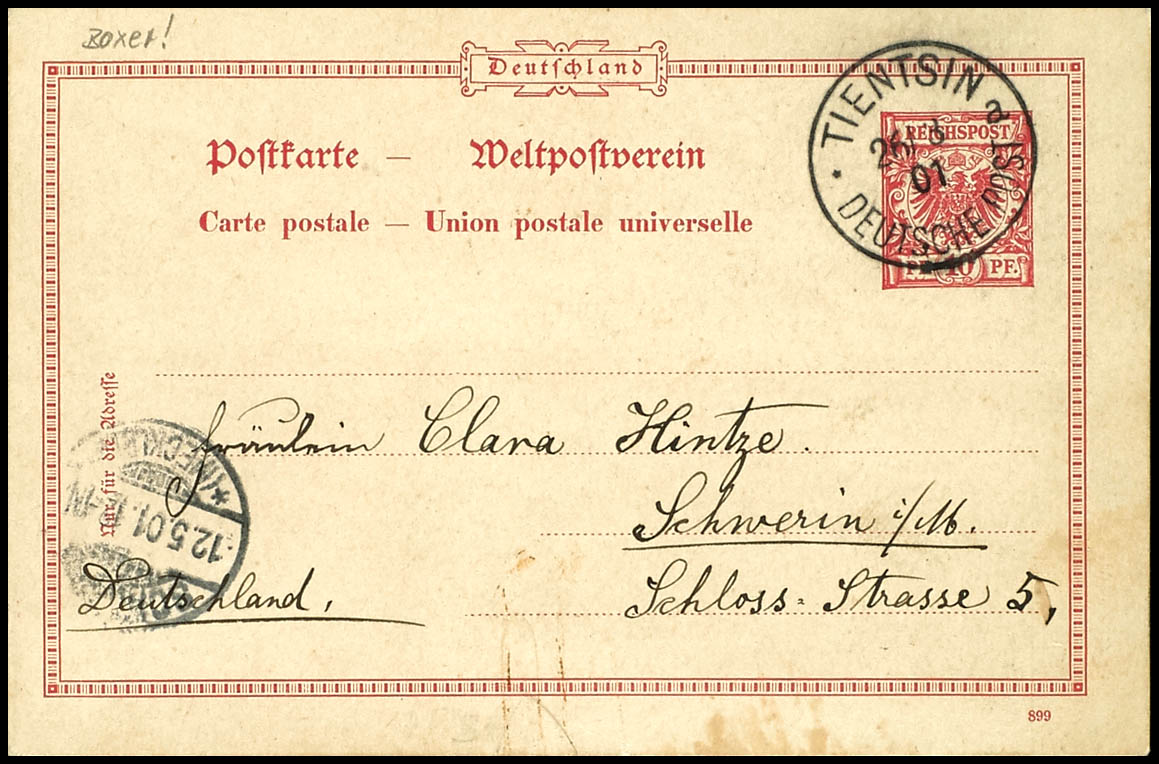 Boxer!
Deutschland
TIENTSIN a
26/3
01
DEUTSCHE POST
REICHSPOST
PF. 10 PF.
Postkarte — Weltpostverein
Carte postale — Union postale universelle
Nur für die Adresse
Fräulein Clara Hintze.
Schwerin i/M.
Deutschland,
Schloss-Strasse 5,
12.5.01.
899